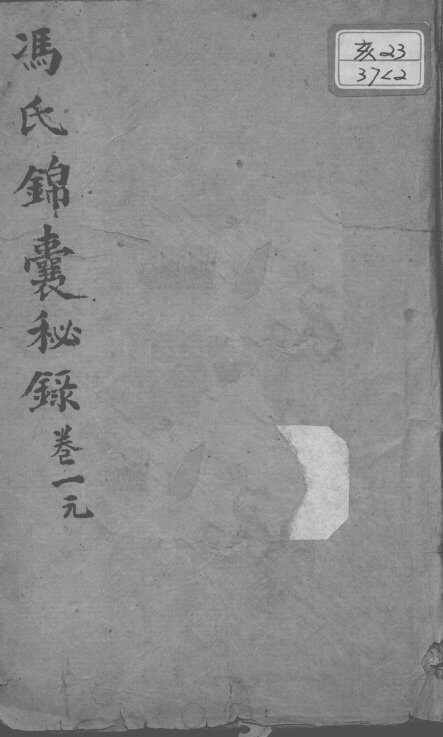 馮氏錦囊秘錄卷一元
亥23
37<2